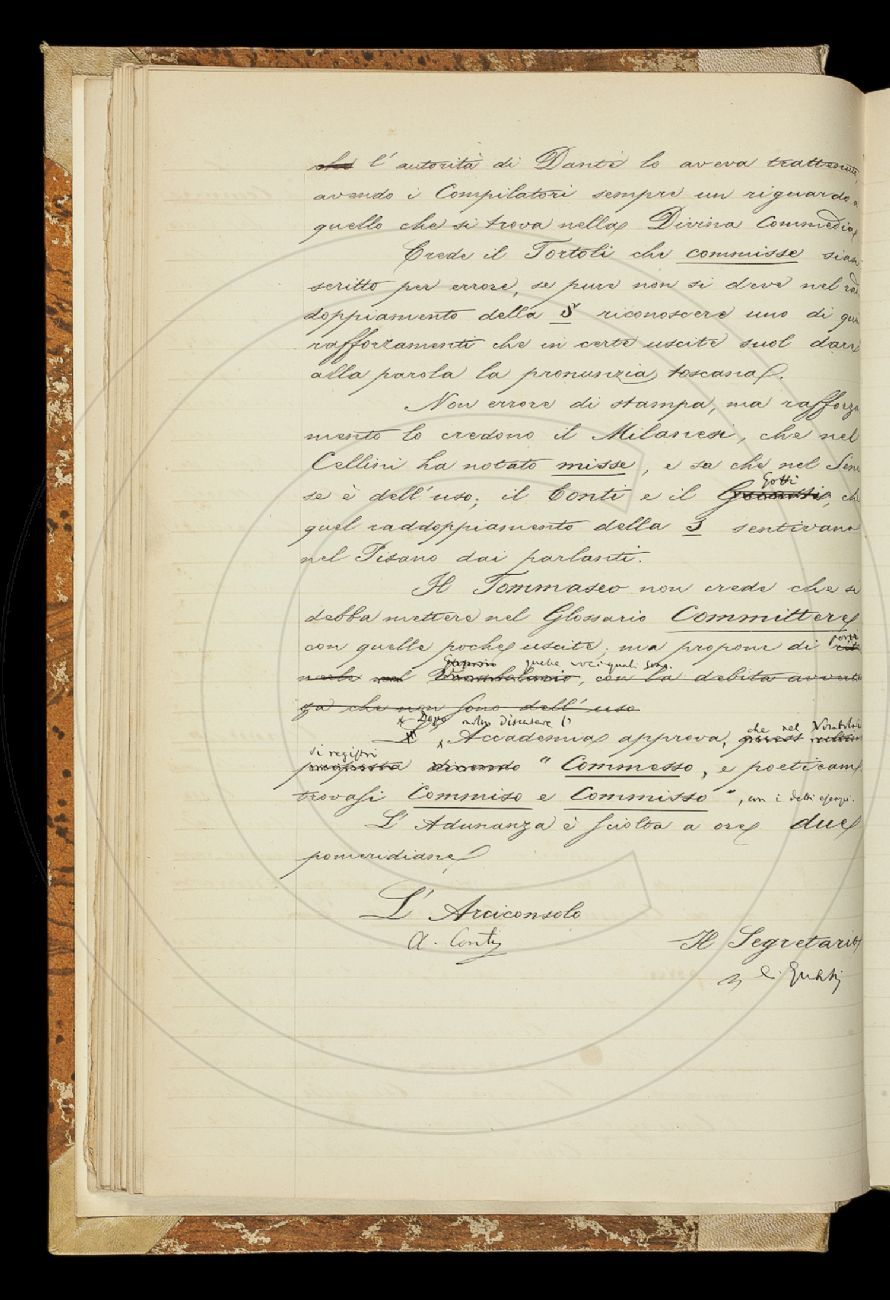 che l'autorità di Dante lo aveva trattenuto,
avendo i Compilatori sempre un riguardo a
quello che si trova nella Divina Commedia
Crede il Tortoli che commisse sian
scritto per errore, se pure non si deve nel
doppiamento della S riconoscere uno di que
rafforzamenti che in certe uscite suol dare
alla parola la pronunzia toscana.
Non errore di stampa, ma rafforza
mento lo credono il Milanesi, che nel
Cellini ha notato misse, e sa che nel Sene
Gotti
se è dell'uso; il Conti e il che
quel raddoppiamento della S sentivano
nel Pisano dai parlanti.
Il Tommaseo non crede che si
debba mettere nel Glossario Committere
con quelle poche uscite; ma propone di porre
quelle voci
nel Vocabolario, con la debita avverten
za che non sono dell'uso
Dopo molto discutere l'
Accademia approva, che nel Vocabolario
si registri
proposta dicendo "Commesso, e poeticam
trovasi Commiso e Commisso", con i detti esempi.
L'Adunanza è sciolta a ore due
pomeridiane
L'Arciconsolo
A. Conti
Il Segretario